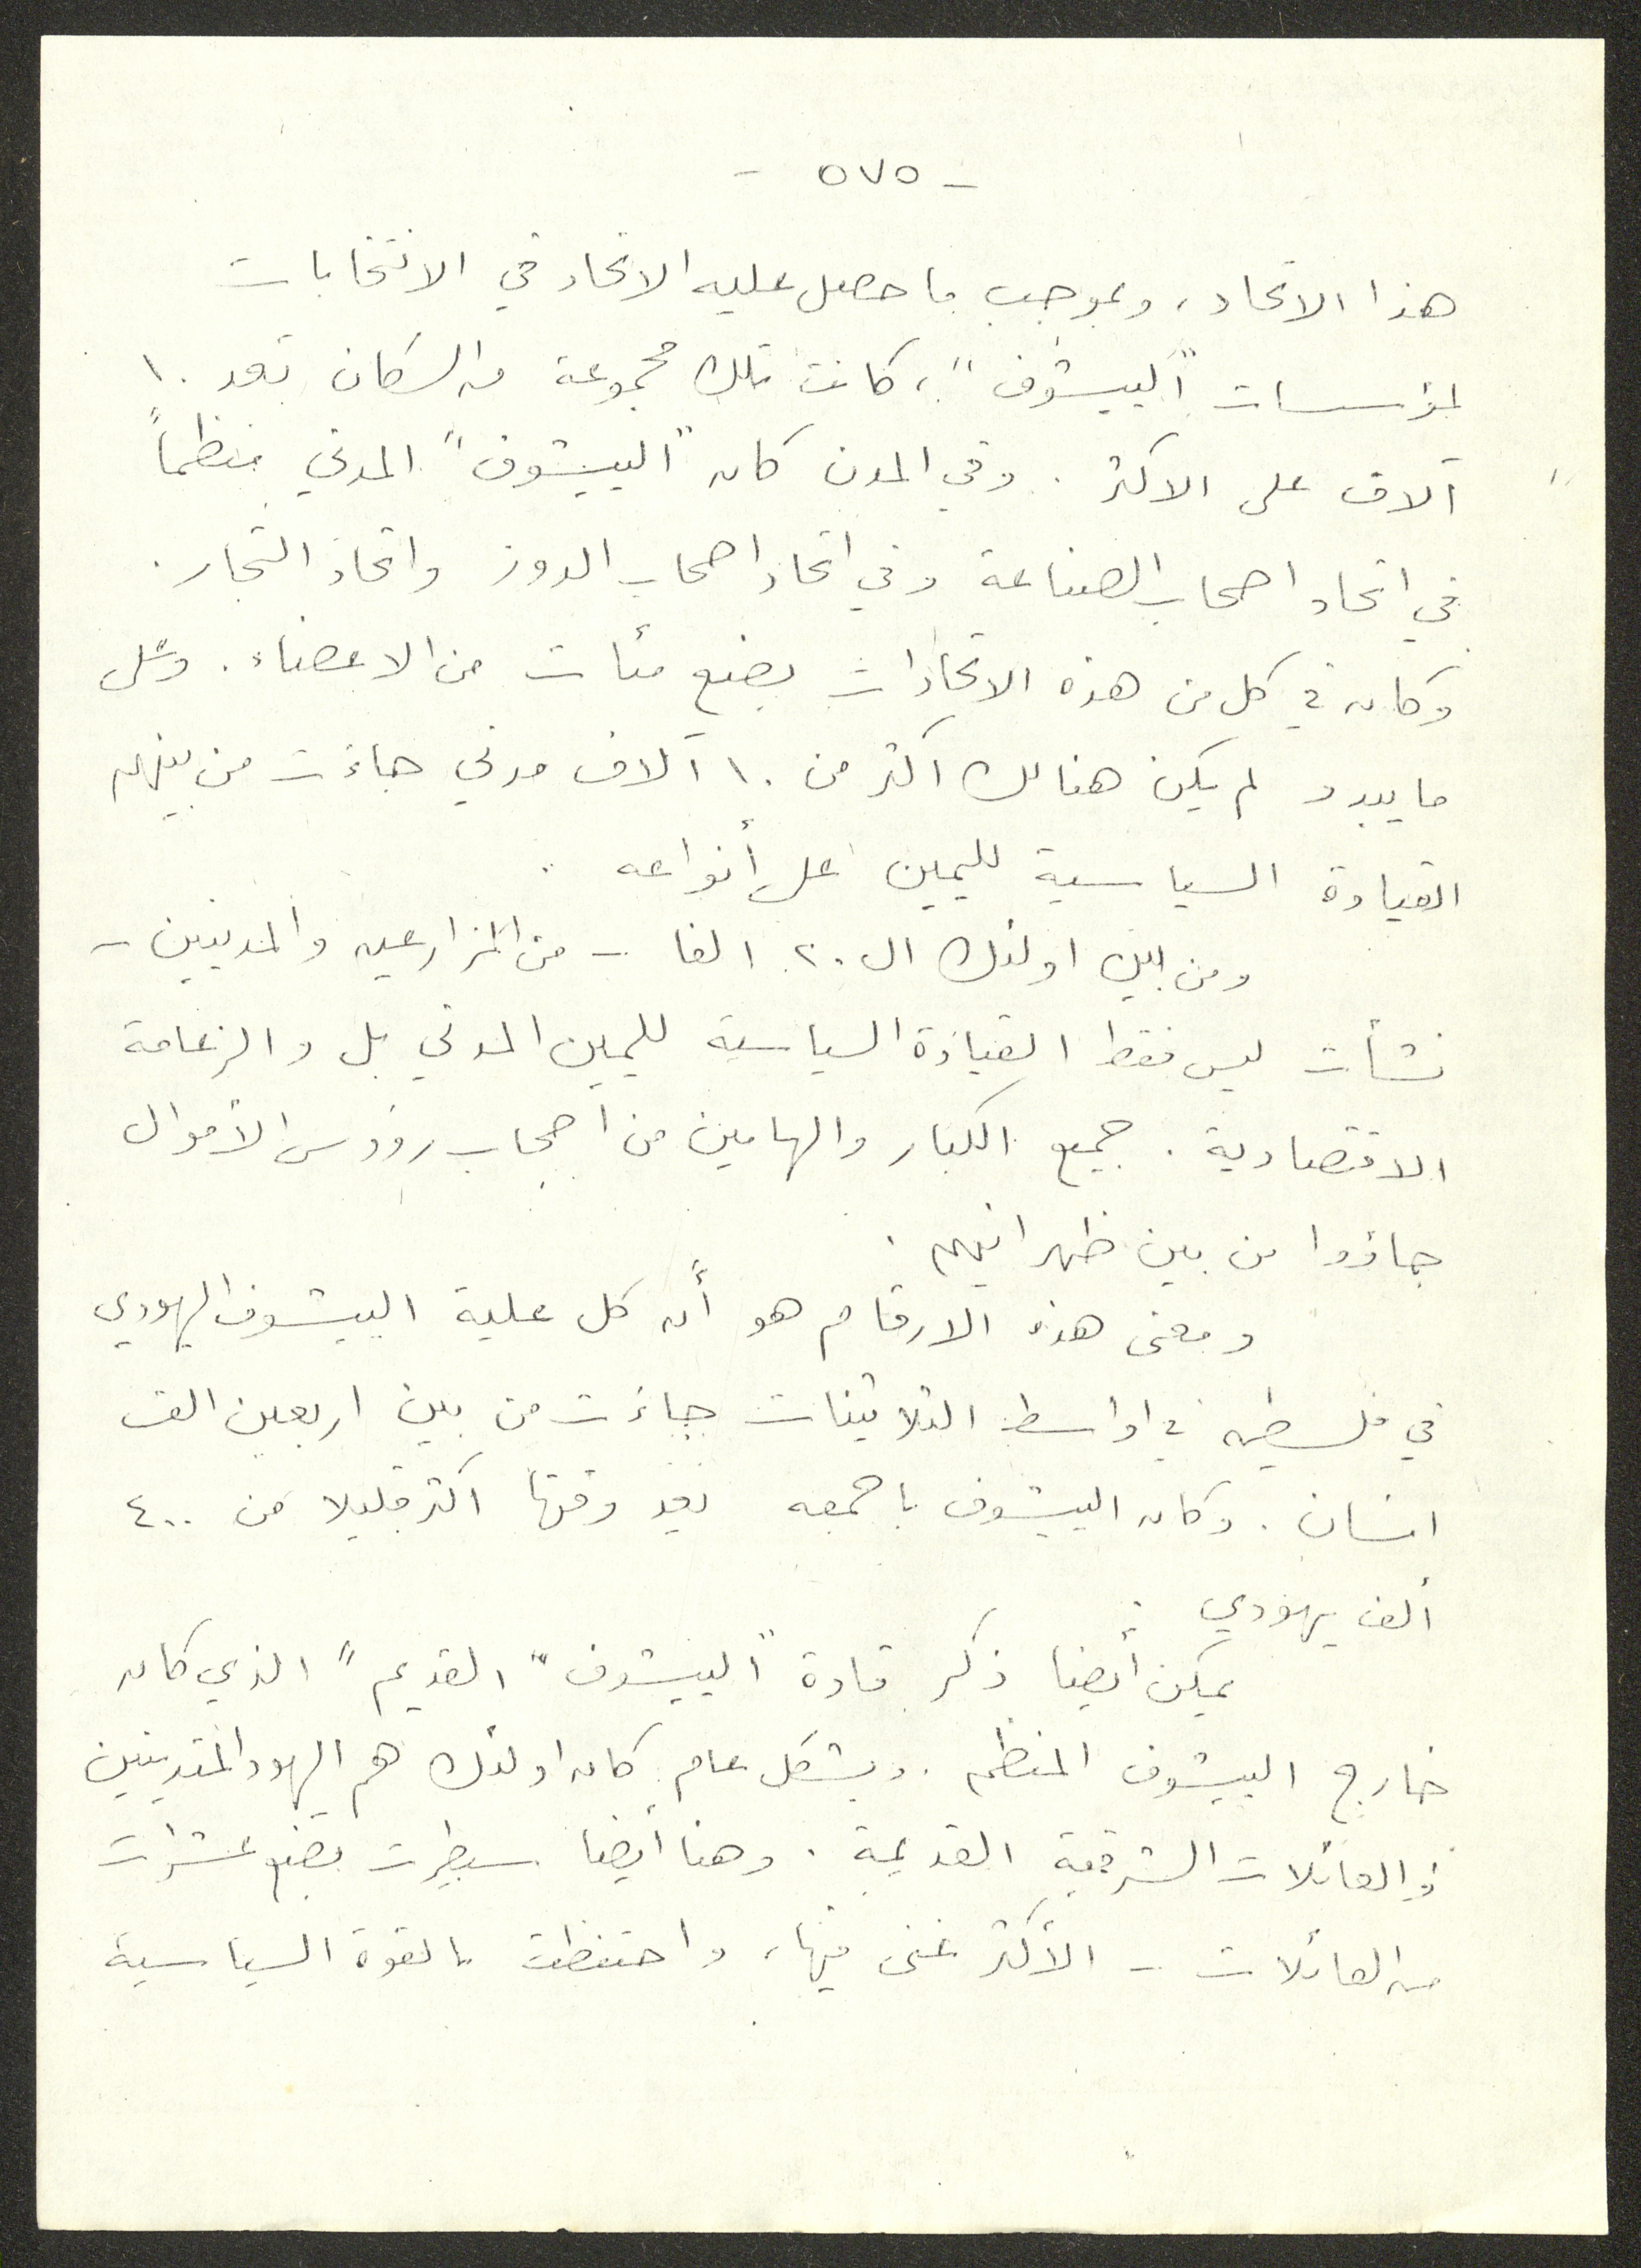 - ٥٧٥ -
هذا الاتحاد، وبموجب ما حصل عليه الاتحاد في الانتخابات
لمؤسسات "الييشوف"، كانت تلك مجموعة من السكان تعد ١٠
آلاف على الاكثر. وفي المدن كان "الييشوف" المدني منظماً
في اتحاد اصحاب الصناعة وفي اتحاد اصحاب الدور واتحاد التجار.
وكان في كل من هذه الاتحادات بضع مئات من الاعضاء. وعلى
ما يبدو لم يكن هنالك اكثر من ١٠ آلاف مدني جاءت من بينهم
القيادة السياسية لليمين على أنواعه.
ومن بين اولئك ال ٢٠ الفا - من المزارعين والمدنيين -
نشأت ليس فقط القيادة السياسية لليمين المدني بل والزعامة
الاقتصادية. جميع الكبار والهامين من اصحاب رؤوس الأموال
جاؤوا من بين ظهرانيهم.
ومعنى هذه الارقام هو أن كل علية الييشوف اليهودي
في فلسطين في اواسط الثلاثينات جاءت من بين اربعين الف
انسان. وكان الييشوف باجمعه يعد وقتها اكثر قليلا من ٤٠٠
ألف يهودي.
يمكن أيضا ذكر قادة "الييشوف" القديم" الذي كان
خارج الييشوف المنظم. وبشكل عام كان اولئك هم اليهود المتدينين
والعائلات الشرقية القديمة. وهنا أيضا سيطرت بضع عشرات
من العائلات - الأكثر غنى فيها، واحتفظت بالقوة السياسية